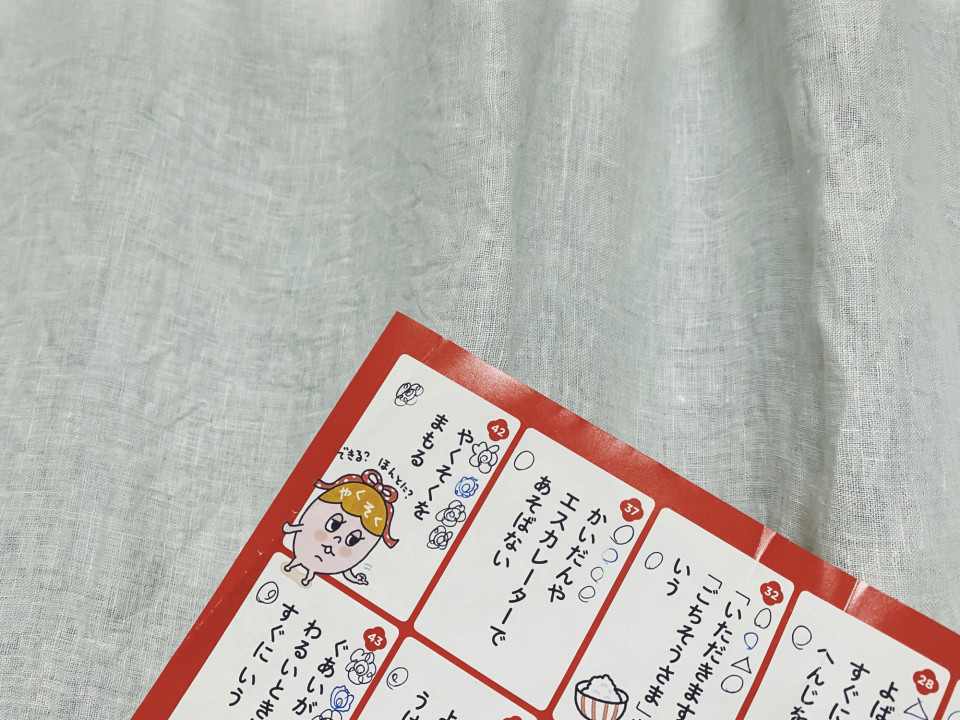 42
やくそくを
まもる
できる?
ほんとに?
やくそく
37
かいだんや
エスカレーターで
あそばない
32
「いただきます
「ごちそうさま」
いう
28
よば
すぐに
へんじを
43
ぐあいが
わるいとき
すぐにいう
よ